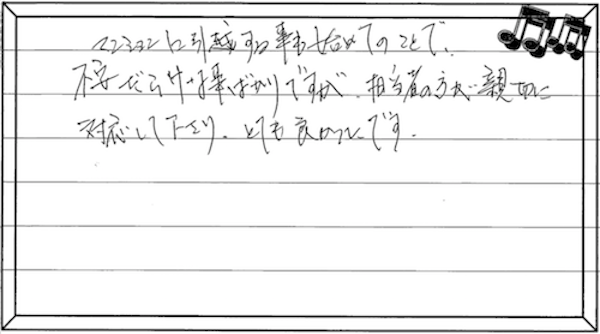 マンションに引越する事も始めてのことで、
不安だらけな事ばかりですが、担当者の方が親切に
対応して下さり、とても良かったです。